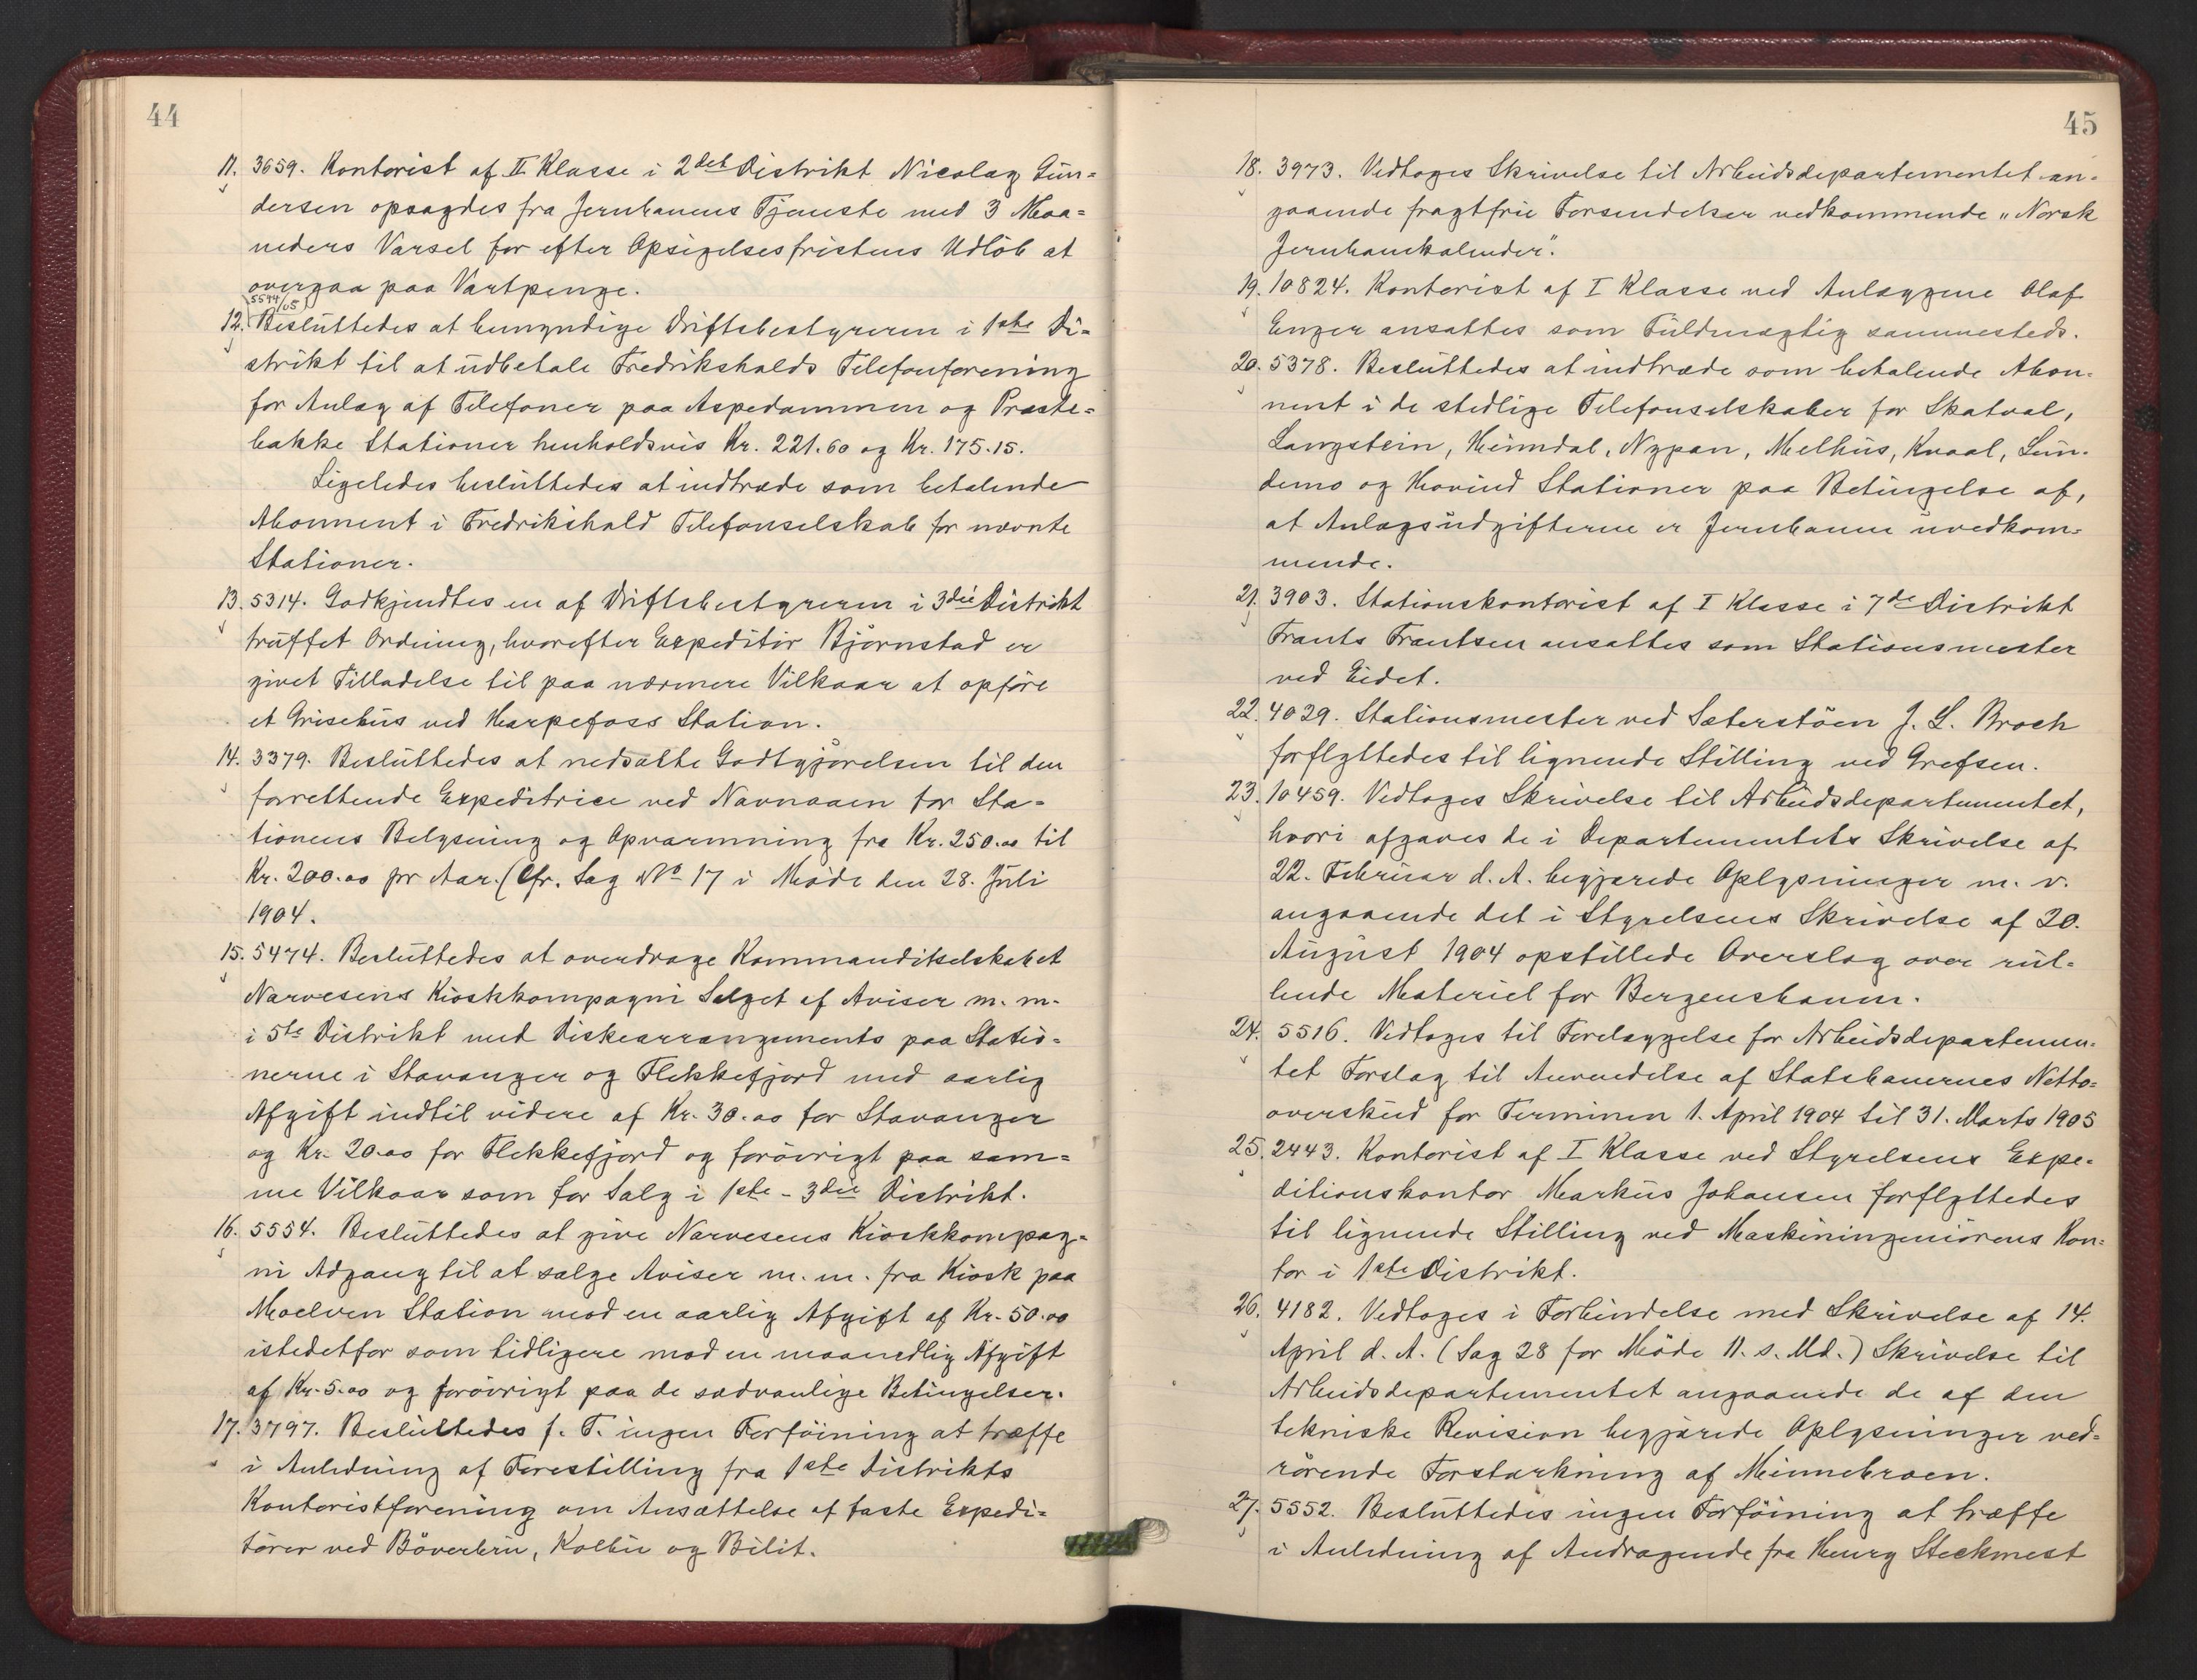 44
11. 3659. Kontorist af II Klasse i 2det Distrikt Nicolay Gun-
dersen opsagdes fra Jernbanens Tjeneste med 3 Maa-
neders Varsel for efter Opsigelsesfristens Udlöb at
overgaa paa Vartpenge.
(5544/05)
12. Besluttedes at bemyndige Driftsbestyreren i 1ste Di-
strikt til at udbetale Fredrikshalds Telefonforening
for Anlæg af Telefoner paa Aspedammen og Præste-
bakke Stationer henholdsvis Kr. 221.60 og Kr. 175.15.
Ligeledes besluttedes at indtræde som betalende
Abonnent i Fredrikshald Telefonselskab for nævnte
Stationer.
13. 5314. Godkjendtes en af Driftsbestyreren i 3die Distrikt
truffet Ordning, hvorefter Expeditör Björnstad er
givet Tilladelse til paa nærmere Vilkaar at opföre
et Grisehus ved Harpefoss Station.
14. 3379. Besluttedes at nedsætte Godtgjörelsen til den
forrettende Expeditrice ved Navnaaen for Sta-
tionens Belysning og Opvarmning fra Kr. 250.00 til
Kr. 200.00 pr Aar. (Cfr. Sag No 17 i Möde den 28. Juli
1904.
15. 5474. Besluttedes at overdrage Kommanditselskabet
Narvesens Kioskkompagni Salget af Aviser m. m.
i 5te Distrikt med Diskearrangements paa Statio-
nerne i Stavanger og Flekkefjord med aarlig
Afgift indtil videre af Kr. 30.00 for Stavanger
og Kr. 20.00 for Flekkefjord og forövrigt paa sam-
me Vilkaar som for Salg i 1ste - 3die Distrikt.
16. 5554. Besluttedes at give Narvesens Kioskkompag-
ni Adgang til at sælge Aviser m. m. fra Kiosk paa
Moelven Station mod en aarlig Afgift af Kr. 50.00
istedetfor som tidligere mod en maanedlig Afgift
af Kr. 5.00 og forövrigt paa de sædvanlige Betingelser.
17. 3797. Besluttedes f. T. ingen Forföining at træffe
i Anledning af Forestilling fra 1ste Distrikts
Kontoristforening om Ansættelse af faste Expedi-
törer ved Böverbru, Kolbu og Bilit.
45
18. 3973. Vedtoges Skrivelse til Arbeidsdepartementet an-
gaaende fragtfrie Forsendelser vedkommende "Norsk
Jernbanekalender".
19. 10824. Kontorist af I Klasse ved Anlæggene Olaf
Enger ansattes som Fuldmægtig sammesteds.
20. 5378. Besluttedes at indtræde som betalende Abon-
nent i de stedlige Telefonselskaber for Skatval,
Langstein, Heimdal, Nypan, Melhus, Kvaal, Lun-
demo og Hovind Stationer paa Betingelse af,
at Anlægsudgifterne er Jernbanen uvedkom-
mende.
21. 3903. Stationskontorist af I Klasse i 7de Distrikt
Frants Frantsen ansattes som Stationsmester
ved Eidet.
22. 4039. Stationsmester ved Sæterstöen J. L. Broch
forflyttedes til lignende Stilling ved Grefsen.
23. 10459. Vedtoges Skrivelse til Arbeidsdepartementet,
hvori afgaves de i Departementets Skrivelse af
22. Februar d. A. begjærede Oplysninger m. v.
angaaende det i Styrelsens Skrivelse af 20.
August 1904 opstillede Overslag over rul-
lende Materiel for Bergensbanen.
24. 5516. Vedtoges til Forelæggelse for Arbeidsdepartemen-
tet Forslag til Anvendelse af Statsbanernes Netto-
overskud for Terminen 1. April 1904 til 31. Marts 1905
25. 2443. Kontorist af I Klasse ved Styrelsens Expe-
ditionskontor Markus Johansen forflyttedes
til lignende Stilling ved Maskiningeniörens Kon-
tor i 1ste Distrikt.
26. 4182. Vedtoges i Forbindelse med Skrivelse af 14.
April d. A. (Sag 28 for Möde 11. s. Md.) Skrivelse til
Arbeidsdepartementet angaaende de af den
tekniske Revision begjærede Oplysninger ved-
rörende Forstærkning af Minnebroen.
27. 5552. Besluttedes ingen Forföining at træffe
i Anledning af Andragende fra Henry Steckmest